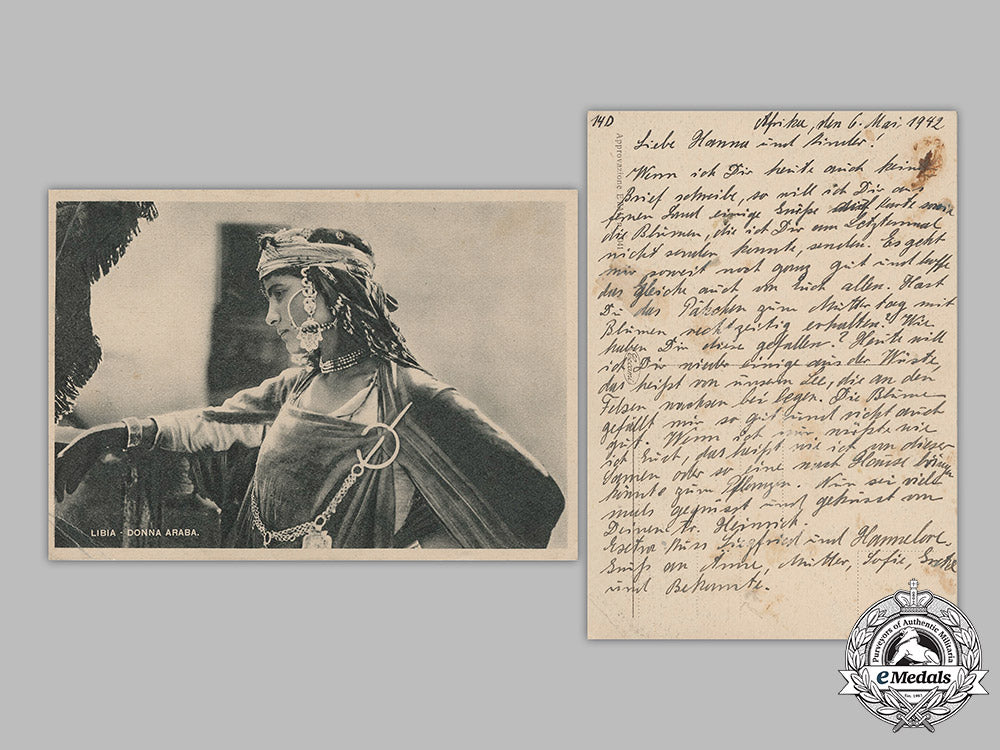 LIBIA - DONNA ARABA.
14D
Afrika, den 6. Mai 1942
Liebe Hanna und Kinder!
Wenn ich Dir heute auch keinen
Brief schreibe, so will ich Dir aus
fernen Land einige Grüße Karte sowie
die Blumen, die ich Dir am Letztenmal
nicht senden konnte, senden. Es geht
mir soweit noch ganz gut und hoffe
das gleiche auch von Euch allen. Hast
Du das Päkchen zum Mutter tag mit
Blumen rechtzeitig erhalten? Wie
haben Dir diese gefallen? Heute will
ich Dir wieder einige aus der Wüste,
das heißt von unserm See, die an den
Felsen wachsen bei legen. Die Blume
gefällt mir so gut und richt auch
gut. Wenn ich nur wüßte wie
ich Euch, das heißt wie ich von dieser
Samen oder so eine nach Hause bringen
könnte zum Pflanzen. Nun sei viel
mals gegrüsst und geküsst von
Deinem Heinrich.
Extra Kuss Siegfried und Hannelore.
Gruß an Anne, Mutter, Sofie,
und Bekannte.
Approvazione
Purveyors of Authentic Militaria
eMedals